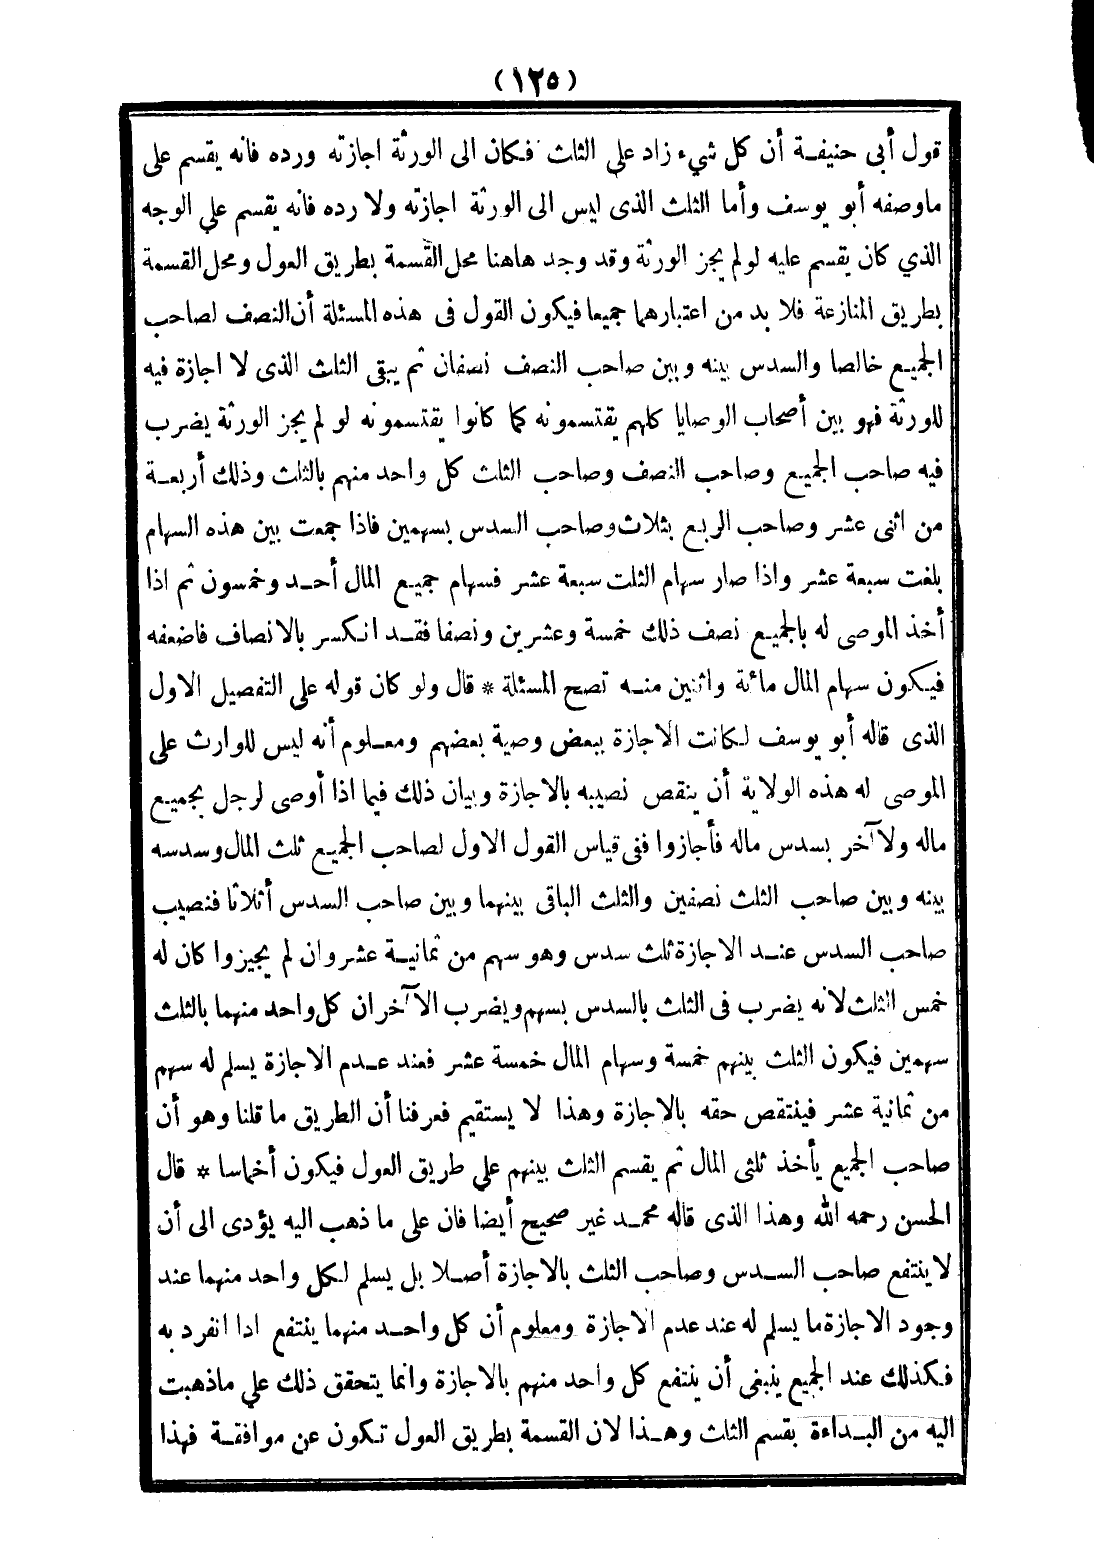 (١٢٥)
قول أبى حنيفة أن كل شىء زاد على الثلث فكان الى الورثة اجازته ورده فانه يقسم على
ماوصفه أبو يوسف وأما الثلث الذى ليس الى الورثة اجازته ولا رده فانه يقسم علي الوجه
الذي كان يقسم عليه لو لم يجز الورثة وقد وجد هاهنا محل القسمة بطريق العول ومحل القسمة
بطريق المنازعة فلا بد من اعتبارهما جميعا فيكون القول فى هذه المسئلة أن النصف لصاحب
الجميع خالصا والسدس بينه وبين صاحب النصف نصفان ثم يبقى الثلث الذى لا اجازة فيه
للورثة فهو بين أصحاب الوصايا كلهم يقتسمونه كما كانوا يقتسمونه لو لم يجز الورثة يضرب
فيه صاحب الجميع وصاحب النصف وصاحب الثلث كل واحد منهم بالثلث وذلك أربعة
من اثنى عشر وصاحب الربع بثلاث وصاحب السدس بسهمين فاذا جمعت بين هذه السهام
بلغت سبعة عشر واذا صار سهام الثلث سبعة عشر فسهام جميع المال أحد وخمسون ثم اذا
أخذ الموصى له بالجميع نصف ذلك خمسة وعشرين ونصفا فقد انكسر بالانصاف فاضعفه
فيكون سهام المال مائة واثنين منه تصح المسئلة * قال ولو كان قوله على التفصيل الاول
الذى قاله أبو يوسف لكانت الاجازة ببعض وصية بعضهم ومعلوم أنه ليس للوارث على
الموصى له هذه الولاية أن ينقص نصيبه بالاجازة وبيان ذلك فيما اذا أوصى لرجل بجميع
ماله ولآخر بسدس ماله فأجازوا ففى قياس القول الاول لصاحب الجميع ثلث المال وسدسه
بينه وبين صاحب الثلث نصفين والثلث الباقى بينهما وبين صاحب السدس أثلاثا فنصيب
صاحب السدس عند الاجازة ثلث سدس وهو سهم من ثمانية عشر وان لم يجيزوا كان له
خمس الثلث لانه يضرب فى الثلث بالسدس بسهم ويضرب الآخران كل واحد منهما بالثلث
سهمين فيكون الثلث بينهم خمسة وسهام المال خمسة عشر فعند عدم الاجازة يسلم له سهم
من ثمانية عشر فينتقص حقه بالاجازة وهذا لا يستقيم فعرفنا أن الطريق ما قلنا وهو أن
صاحب الجميع يأخذ ثلثى المال ثم يقسم الثلث بينهم علي طريق العول فيكون أخماسا * قال
الحسن رحمه الله وهذا الذى قاله محمد غير صحيح أيضا فان على ما ذهب اليه يؤدى الى أن
لا ينتفع صاحب السدس وصاحب الثلث بالاجازة أصلا بل يسلم لكل واحد منهما عند
وجود الاجازة ما يسلم له عند عدم الاجازة ومعلوم أن كل واحد منهما ينتفع اذا انفرد به
فكذلك عند الجميع ينبغى أن ينتفع كل واحد منهم بالاجازة وانما يتحقق ذلك علي ماذهبت
اليه من البداءة بقسم الثلث وهذا لان القسمة بطريق العول تكون عن موافقة فهذا